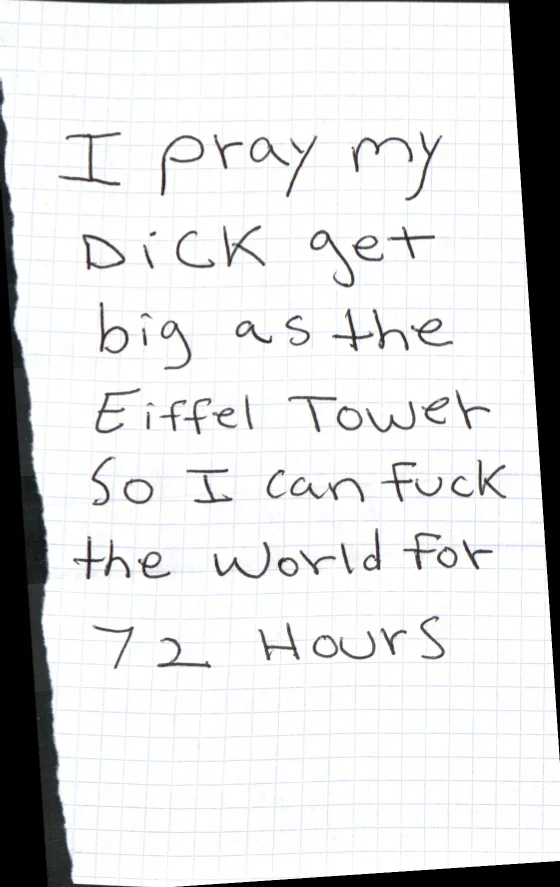 I pray my
DiCK get
big as the
Eiffel Tower
So I can fuck
the World for
72 Hours